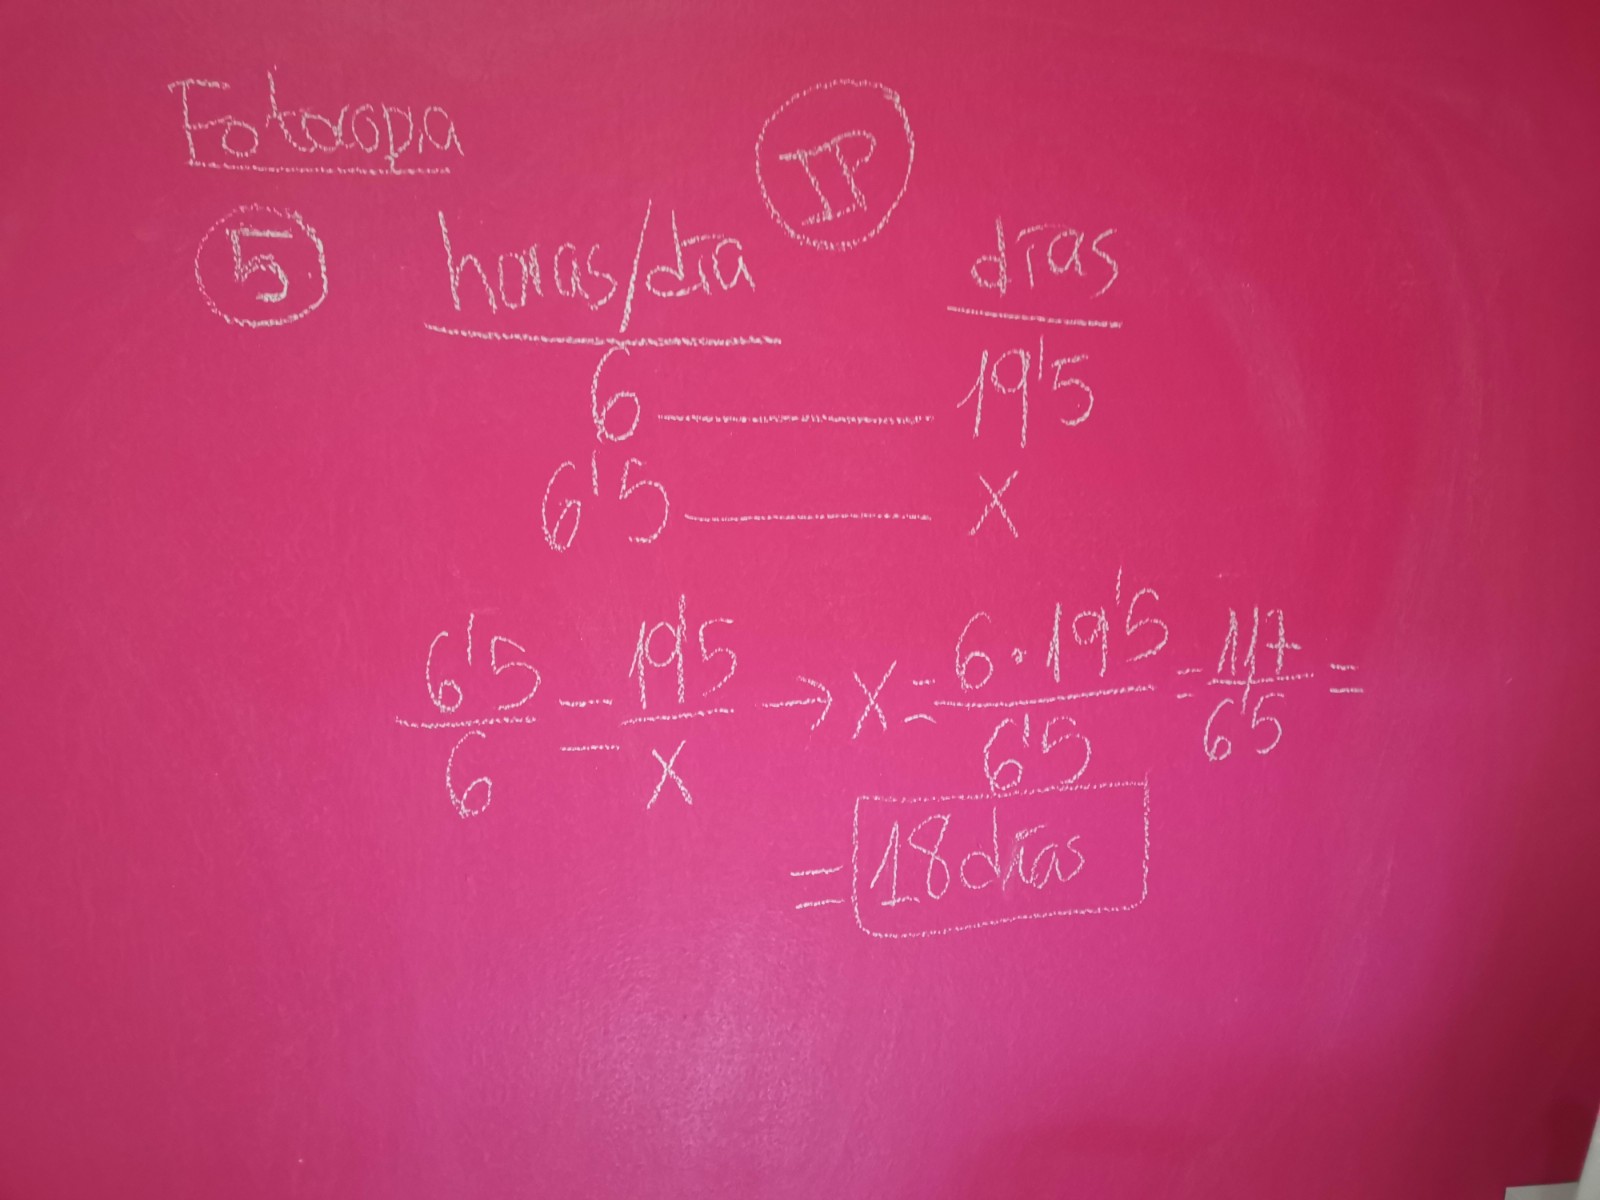 Fotocopia
IP
5 horas/día días
6 19'5
6'5 x
6'5/6 = 19'5/x → x = 6·19'5/6'5 = 117/6'5 =
= 18 días